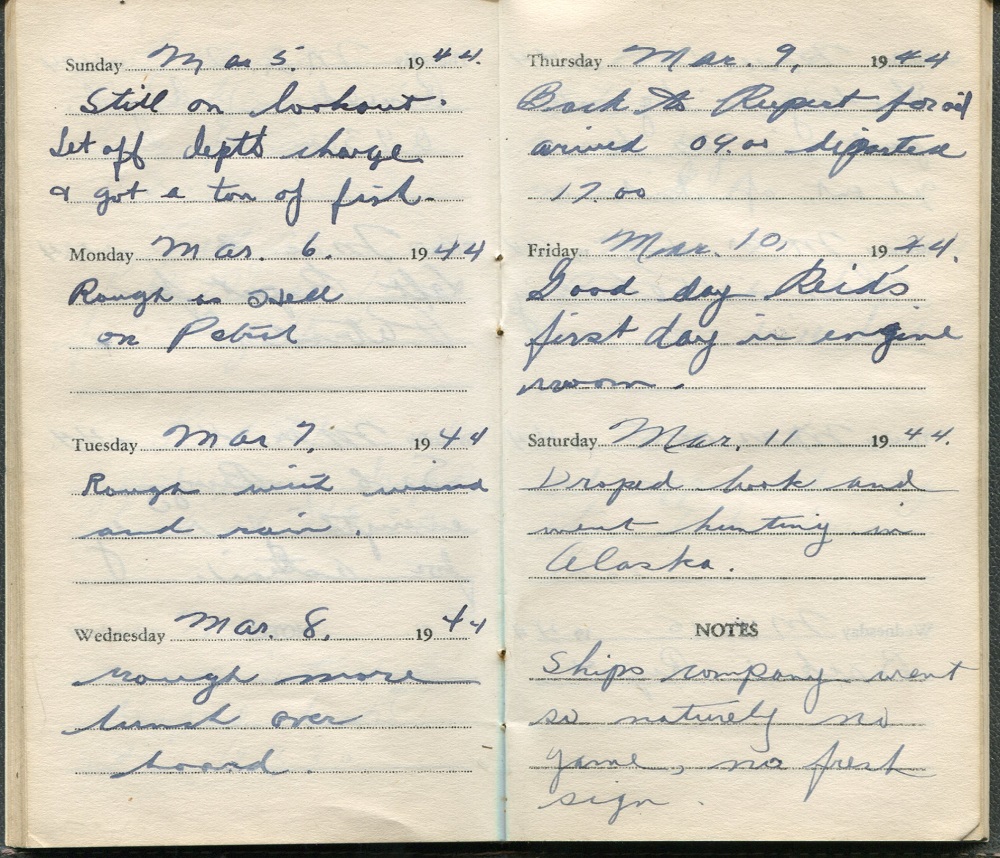 Sunday Mar 5. 1944.
Still on lookout.
Let off depth charge
& got a ton of fish.
Monday Mar. 6. 1944
Rough as Hell
on Patrol
Tuesday Mar 7, 1944
Rough with wind
and rain.
Wednesday Mar. 8, 1944
rough more
lunch over
board.
Thursday Mar. 9, 1944
Back to Rupert for oil
arrived 09.00 departed
17.00
Friday Mar. 10, 1944.
Good day Reid's
first day in engine
room.
Saturday Mar, 11 1944.
Droped hook and
went hunting in
Alaska.
NOTES
Ships company went
so naturely no
game, no fresh
sign.